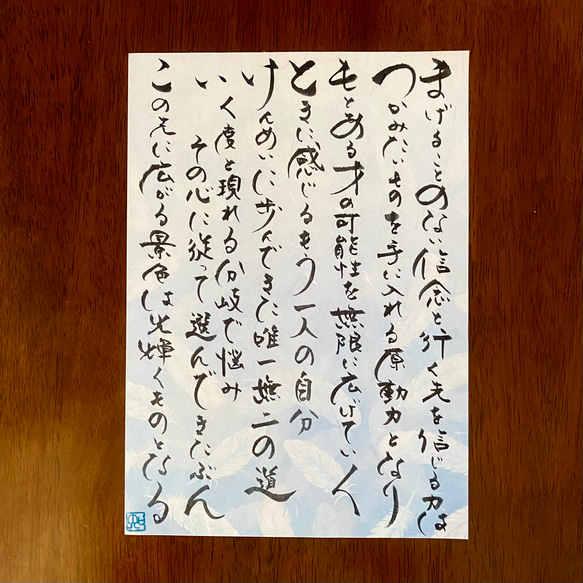 まげることのない信念と行く先を信じる力は
つかみたいものを手に入れる原動力となり
もとある才の可能性を無限に広げていく
ときに感じるもう一人の自分
けんめいに歩んできた唯一無二の道
いく度と現れる分岐で悩み
その心に従って選んできたぶん
この先に広がる景色は光輝くものとなる